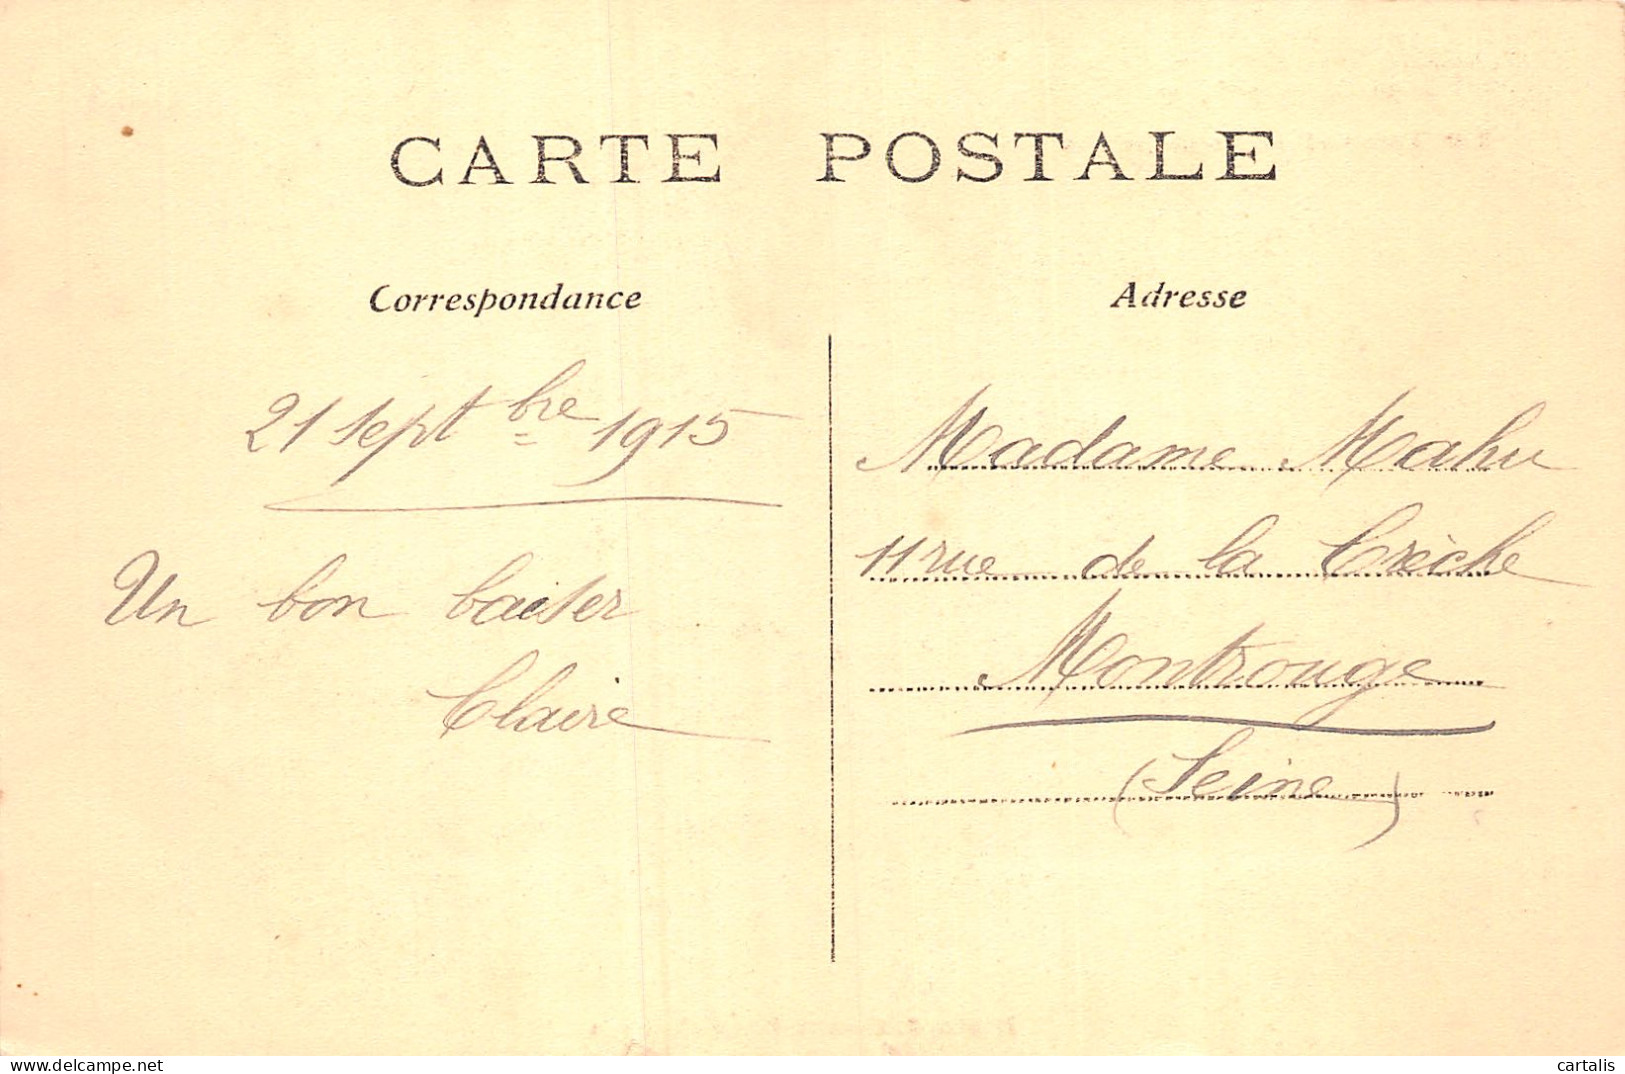 CARTE POSTALE
Correspondance
21 septbre 1915
Un bon baiser
Claire
Adresse
Madame Mahu
11 rue de la Crèche
Montrouge
(Seine)
delcampe.net
cartalis